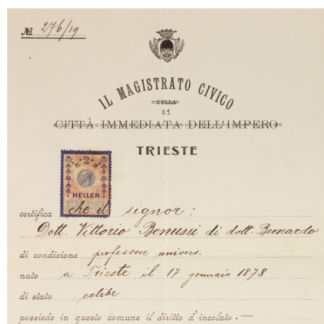 № 276/19
IL MAGISTRATO CIVICO
DELLA
di
CITTÀ IMMEDIATA DELL'IMPERO
TRIESTE
2
HELLER
certifica che il signor:
Dott. Vittorio Benussi di dott. Bernardo
di condizione professore univers.
nato a Trieste il 17 gennaio 1878
di stato celibe
possiede in questo comune il diritto d'incolato. —